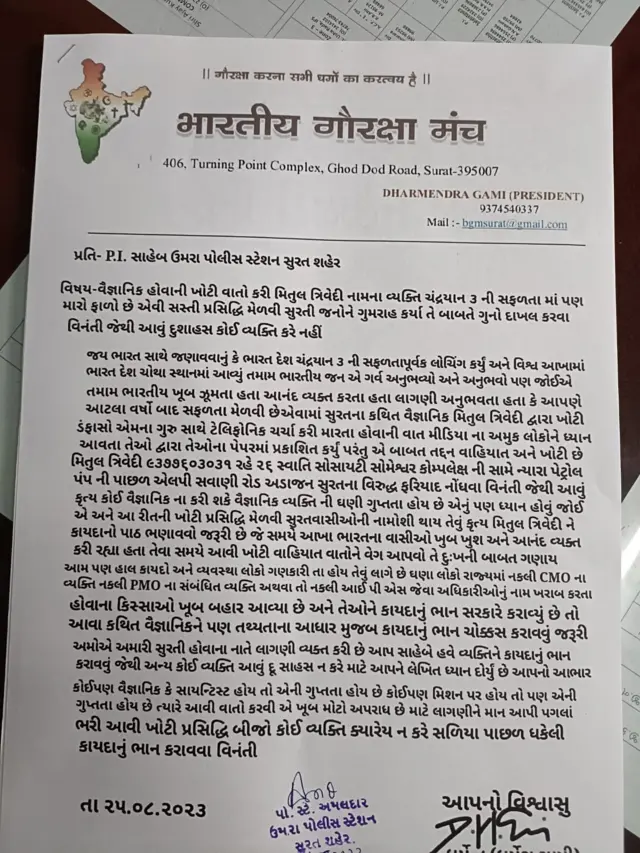 || गौरक्षा करना सभी धर्मो का करतव्य है ||
भारतीय गौरक्षा मंच
406, Turning Point Complex, Ghod Dod Road, Surat-395007
DHARMENDRA GAMI (PRESIDENT)
9374540337
Mail :- bgmsurat@gmail.com
પ્રતિ- P.I. સાહેબ ઉમરા પોલીસ સ્ટેશન સુરત શહેર
વિષય-વૈજ્ઞાનિક હોવાની ખોટી વાતો કરી મિતુલ ત્રિવેદી નામના વ્યક્તિ ચંદ્રયાન 3 ની સફળતા માં પણ
મારો ફાળો છે એવી સસ્તી પ્રસિદ્ધિ મેળવી સુરતી જનોને ગુમરાહ કર્યા તે બાબતે ગુનો દાખલ કરવા
વિનંતી જેથી આવું દુશાહસ કોઈ વ્યક્તિ કરે નહીં
જય ભારત સાથે જણાવવાનું કે ભારત દેશ ચંદ્રયાન 3 ની સફળતાપૂર્વક લોચિંગ કર્યું અને વિશ્વ આખામાં
ભારત દેશ ચોથા સ્થાનમાં આવ્યું તમામ ભારતીય જન એ ગર્વ અનુભવ્યો અને અનુભવો પણ જોઈએ
તમામ ભારતીય ખૂબ ઝૂમતા હતા આનંદ વ્યક્ત કરતા હતા લાગણી અનુભવતા હતા કે આપણે
આટલા વર્ષો બાદ સફળતા મેળવી છેએવામાં સુરતના કથિત વૈજ્ઞાનિક મિતુલ ત્રિવેદી દ્વારા ખોટી
ડંફાસો એમના ગુરુ સાથે ટેલિફોનિક ચર્ચા કરી મારતા હોવાની વાત મીડિયા ના અમુક લોકોને ધ્યાન
આવતા તેઓ દ્વારા તેઓના પેપરમાં પ્રકાશિત કર્યું પરંતુ એ બાબત તદ્દન વાહિયાત અને ખોટી છે
મિતુલ ત્રિવેદી ૯૩૭૭૬૦૩૦૩૧ રહે ૨૬ સ્વાતિ સોસાયટી સોમેશ્વર કોમ્પલેક્ષ ની સામે ન્યારા પેટ્રોલ
પંપ ની પાછળ એલપી સવાણી રોડ અડાજન સુરતના વિરુદ્ધ ફરિયાદ નોંધવા વિનંતી જેથી આવું
કૃત્ય કોઈ વૈજ્ઞાનિક ના કરી શકે વૈજ્ઞાનિક વ્યક્તિ ની ઘણી ગુપ્તતા હોય છે એનું પણ ધ્યાન હોવું જોઈ
એ અને આ રીતની ખોટી પ્રસિદ્ધિ મેળવી સુરતવાસીઓની નામોશી થાય તેવું કૃત્ય મિતુલ ત્રિવેદી ને
કાયદાનો પાઠ ભણાવવો જરૂરી છે જે સમયે આખા ભારતના વાસીઓ ખૂબ ખુશ અને આનંદ વ્યક્ત
કરી રહ્યા હતા તેવા સમયે આવી ખોટી વાહિયાત વાતોને વેગ આપવો તે દુઃખની બાબત ગણાય
આમ પણ હાલ કાયદો અને વ્યવસ્થા લોકો ગણકારી તા હોય તેવું લાગે છે ઘણા લોકો રાજ્યમાં નકલી CMO ના
વ્યક્તિ નકલી PMO ના સંબંધિત વ્યક્તિ અથવા તો નકલી આઈ પી એસ જેવા અધિકારીઓનું નામ ખરાબ કરતા
હોવાના કિસ્સાઓ ખૂબ બહાર આવ્યા છે અને તેઓને કાયદાનું ભાન સરકારે કરાવ્યું છે તો
આવા કથિત વૈજ્ઞાનિકને પણ તથ્યતાના આધાર મુજબ કાયદાનું ભાન ચોક્કસ કરાવવું જરૂરી
અમોએ અમારી સુરતી હોવાના નાતે લાગણી વ્યક્ત કરી છે આપ સાહેબે હવે વ્યક્તિને કાયદાનું ભાન
કરાવવું જેથી અન્ય કોઈ વ્યક્તિ આવું દૂ સાહસ ન કરે માટે આપને લેખિત ધ્યાન દોર્યું છે આપનો આભાર
કોઈપણ વૈજ્ઞાનિક કે સાયન્ટિસ્ટ હોય તો એની ગુપ્તતા હોય છે કોઈપણ મિશન પર હોય તો પણ એની
ગુપ્તતા હોય છે ત્યારે આવી વાતો કરવી એ ખૂબ મોટો અપરાધ છે માટે લાગણીને માન આપી પગલાં
ભરી આવી ખોટી પ્રસિદ્ધિ બીજો કોઈ વ્યક્તિ ક્યારેય ન કરે સળિયા પાછળ ધકેલી
કાયદાનું ભાન કરાવવા વિનંતી
તા ૨૫.૦૮.૨૦૨૩
પો. સ્ટે. અમલદાર
ઉમરા પોલીસ સ્ટેશન
સુરત શહેર.
આપનો વિશ્વાસુ